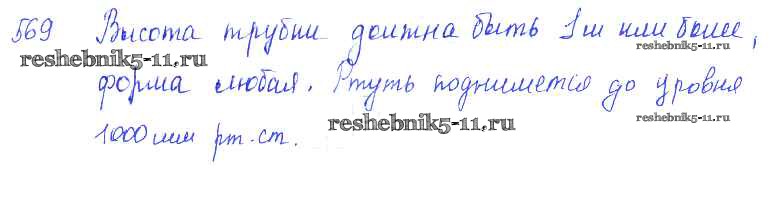 569 Высота трубки должна быть 1м или более,
reshebnik5-11.ru reshebnik5-11.ru
форма любая. Ртуть поднимется до уровня
1000 мм рт.ст. reshebnik5-11.ru reshebnik5-11.ru